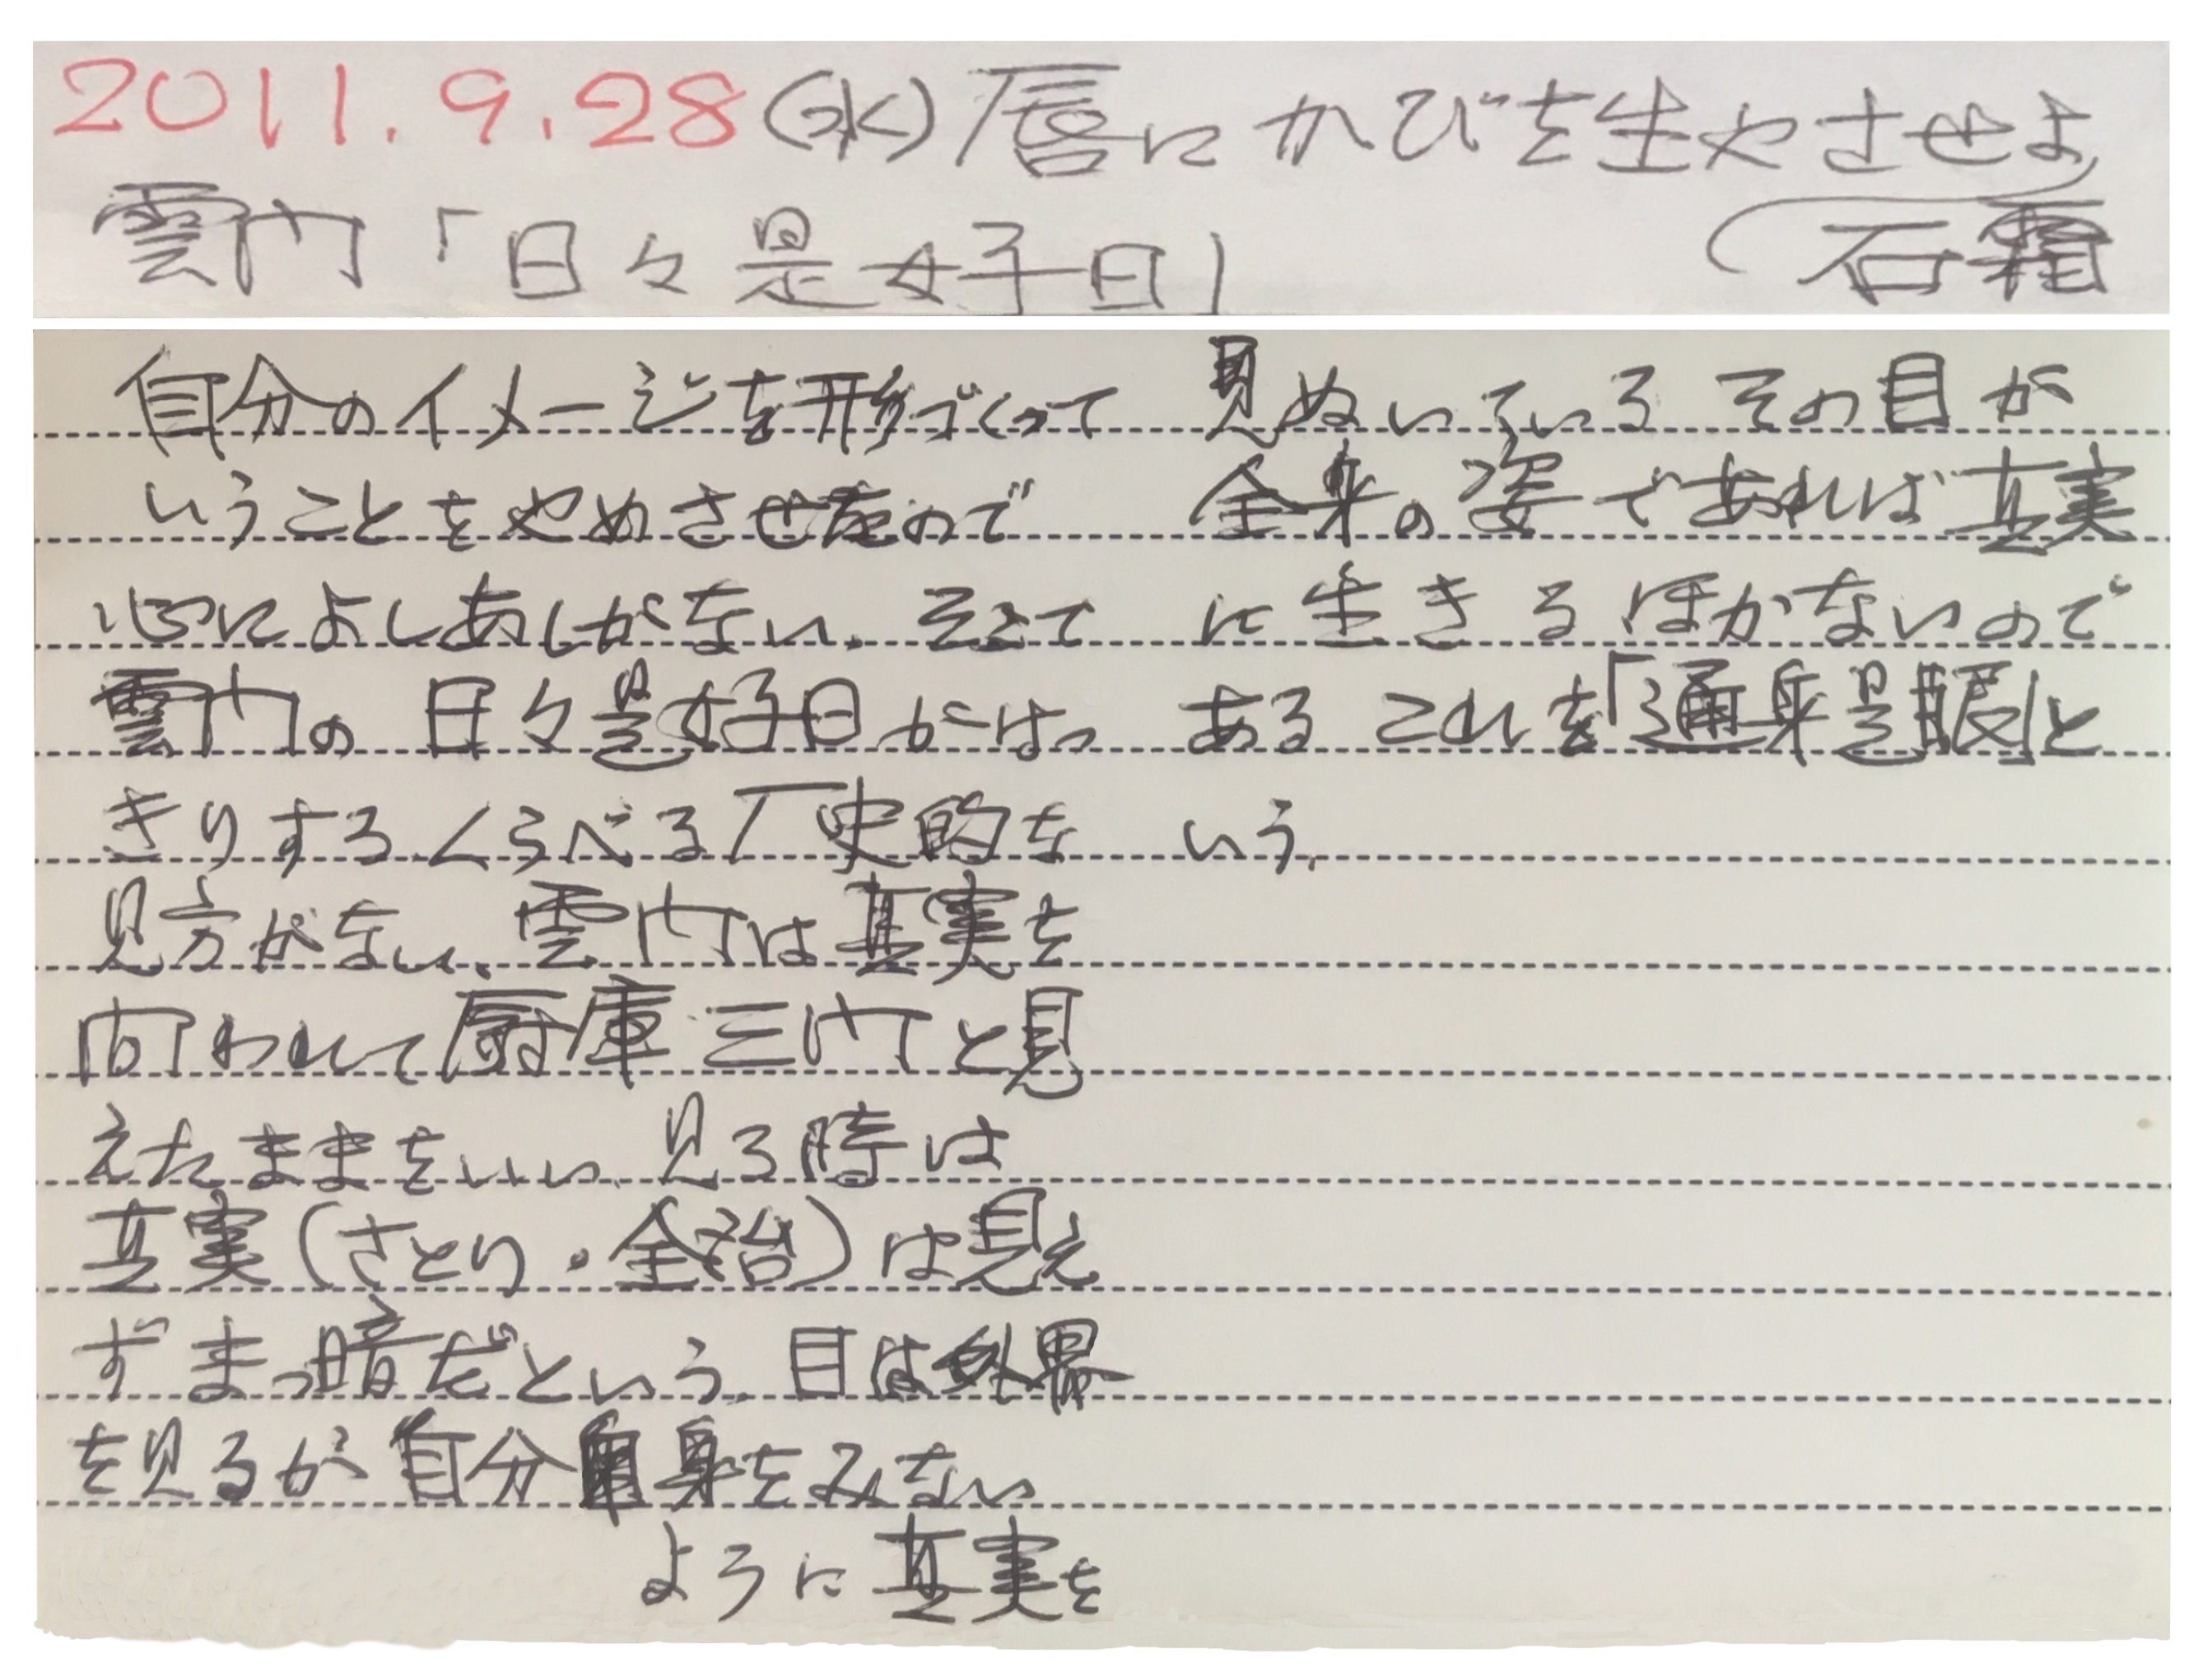 2011.9.28(水)唇にかびを生やさせよ
(石霜
雲门「日々是好日」
自分のイメージを形づくって
いうことをやめさせたので
心によしあしがない、そこで
雲门の日々是好日がはっ
きりする.くらべる厂史的な
見方がない、雲门は真実を
问われて厨庫三门と見
えたままをいい、見る時は
真実(さとり・全治)は見え
ずまっ暗だという、目は外界
を見るが自分自身をみない
ように真実を
見ぬいているその目が
全来の姿であれば真実
に生きるほかないので
あるこれを「通身是眼」と
いう、